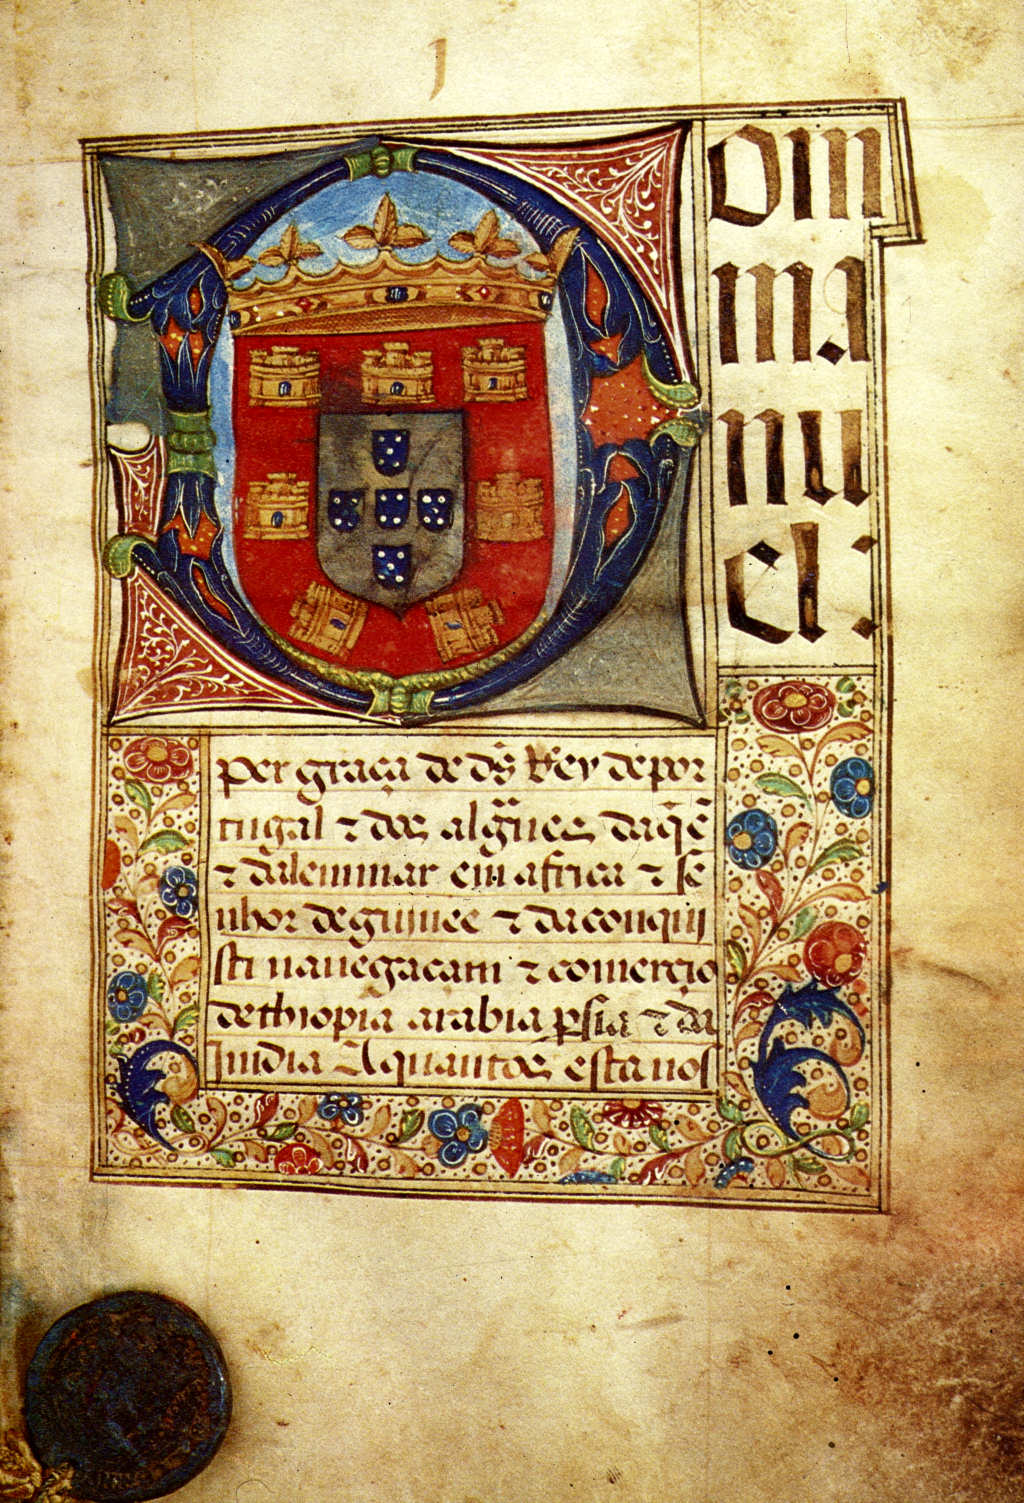 Dom
ma
nu
el:
per graça de d̃s Rey de por
tugal ⁊ dos alg̃ues daq̃
⁊ dalem mar em africa ⁊ se
nhor de guinee ⁊ da conqui
sta nauegacam ⁊ comerçio
dethiopia arabia psia ⁊ da
India A quantos esta nos